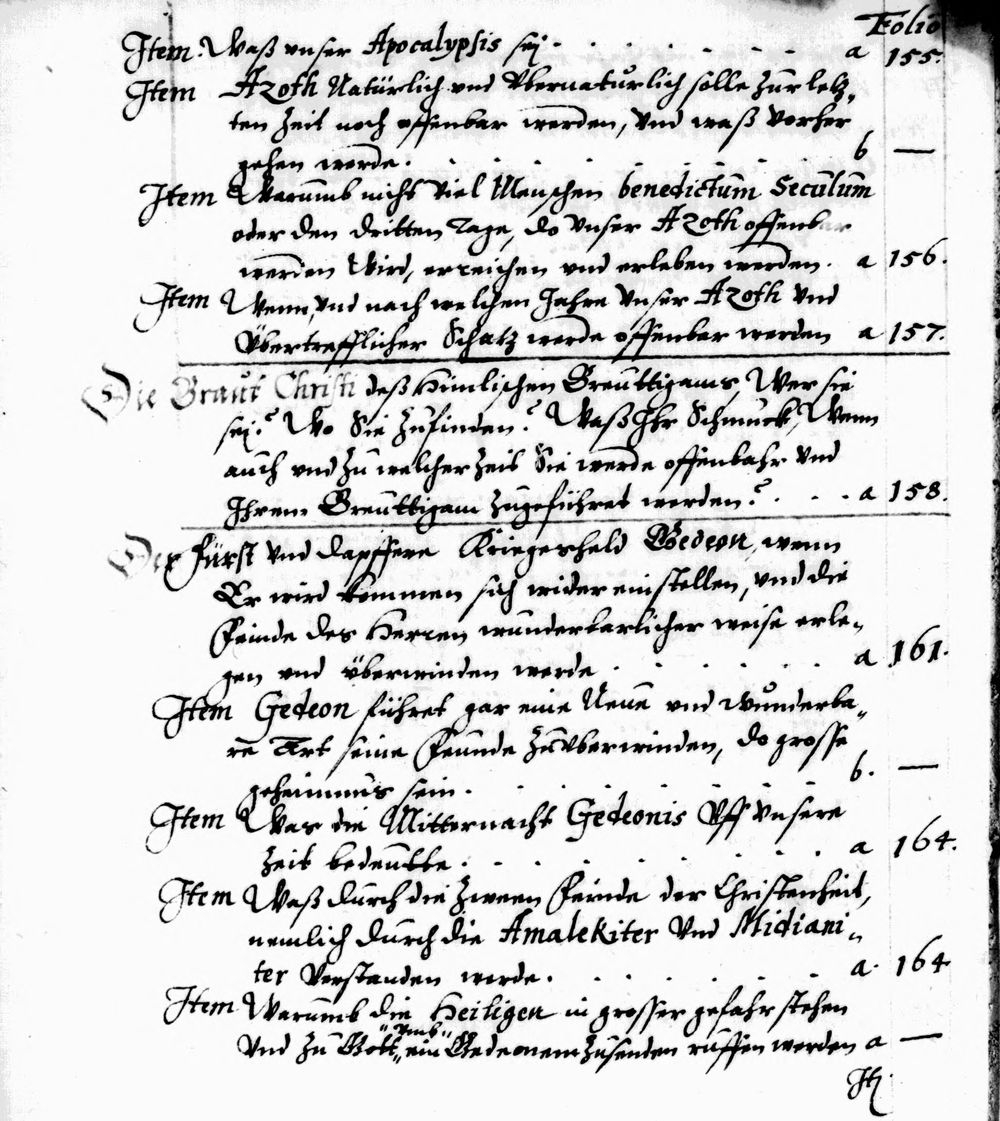 Folio
Item. Waß vnser Apocalypsis seÿ . . . . . . . a 155.
Item Azoth Natürlich vnd Vbernatürlich solle Zur letz„
ten Zeit noch offenbar werden, Vnd waß vorher
gehen werde. . . . . . . . . b —
Item Warumb nicht Viel Menschen benedictum Seculum
oder den dritten Tage, do Vnser Azoth offenbar
werden Wird, erreichen vnd erleben werden. a 156.
Item Wenn, vnd nach welchen Jahre Vnser Azoth Vnd
Übertrefflicher Schatz werde offenbar werden a 157.
Die Braut Christi deß Himlischen Breuttigams, Wer sie
seÿ? Wo Sie Zufinden? Waß Ihr Schmuck, Wenn
auch vnd Zu welcher Zeit Sie werde offenbahr Vnd
Ihrem Breuttigam Zugeführet werden? . . . a 158.
Der Fürst Vnd dapffere Kriegesheld Gedeon, wenn
Er wird kommen sich wider einstellen, vnd die
Feinde des Herren wunderbarlicher weise erle„
gen vnd überwinden werde . . . . . . a 161.
Item Gedeon führet gar eine Neue vnd wunderba„
re Art seine Feinde Zuvberwinden, do grosse
geheimnus sein. . . . . . . . b. —
Item Was die Mitternacht Gedeonis Vff Vnsere
Zeit bedeutte. . . . . . . . . a 164.
Item Waß durch die Zween Feinde der Christenheit,
nemlich durch die Amalekiter Vnd Midiani„
ter Verstanden werde. . . . . . . a. 164
Item Warumb die Heiligen in grosser gefahr stehen
Vnd Zu Gott „vmb“ ein Gedeonem Zusenden ruffen werden a —
It